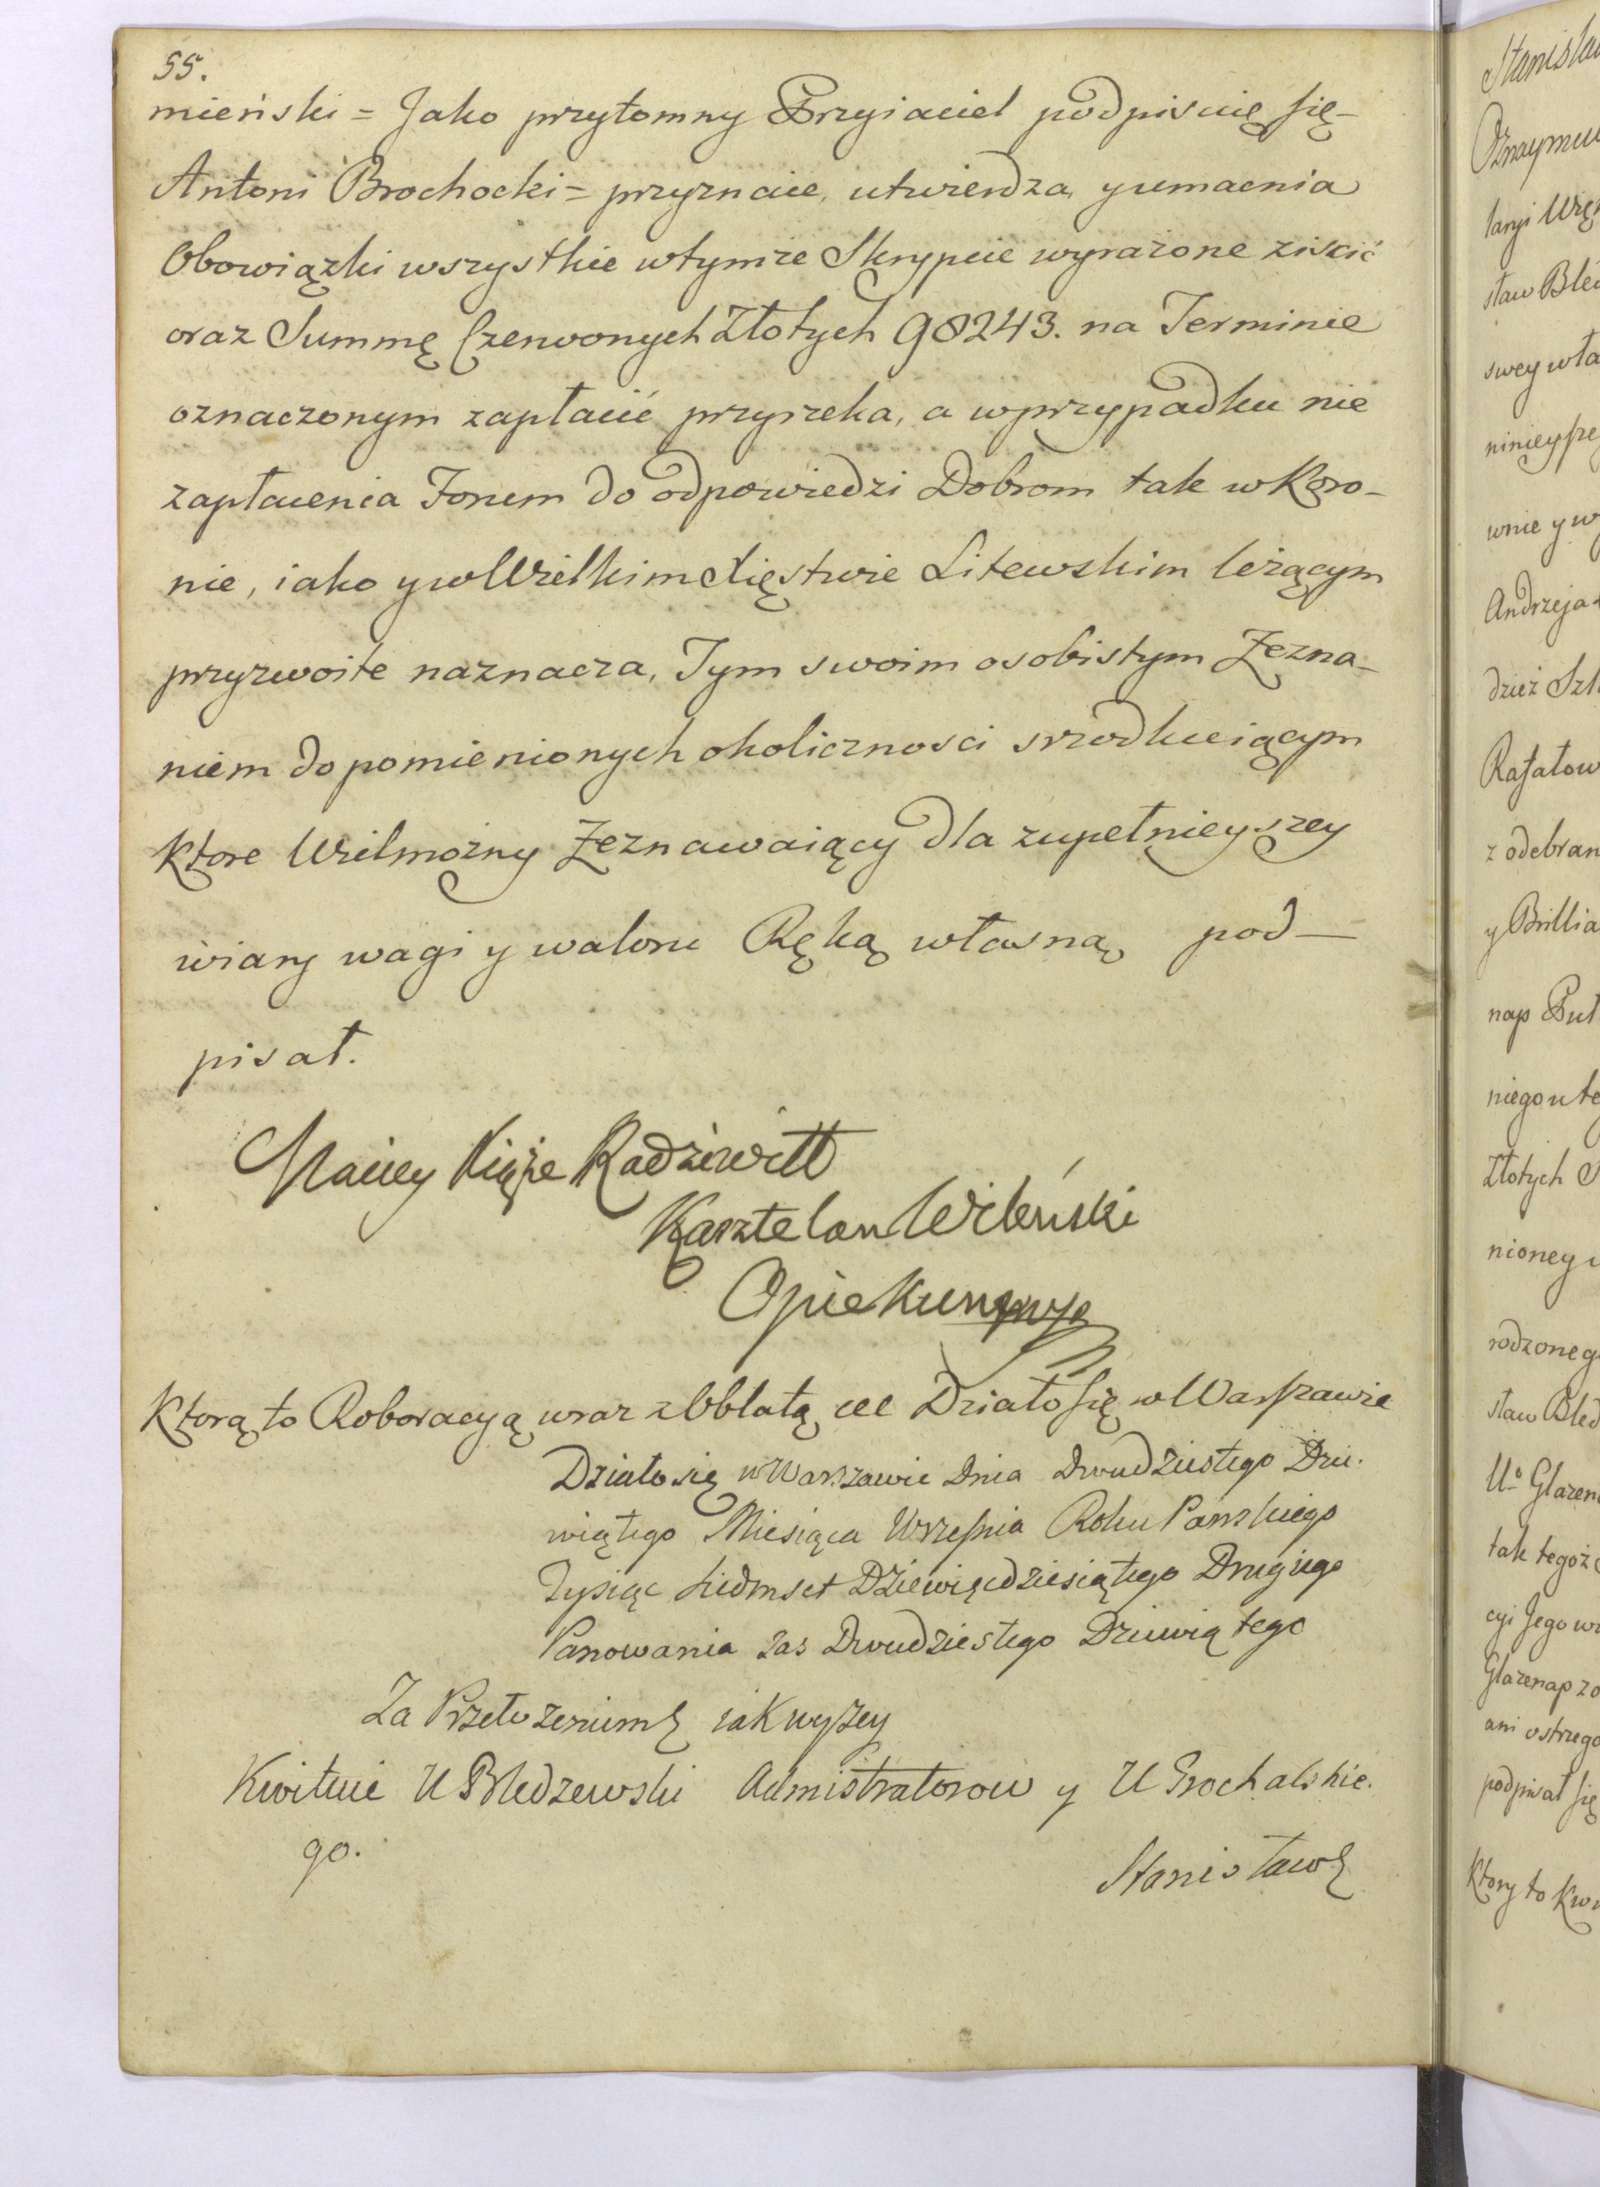 55.
mieński = Jako przytomny Przyiaciel podpisuię się –
Antoni Brochocki = przyznaie, utwierdza, y umacnia
Obowiązki wszystkie w tymże Skrypcie wyrażone ziścić
oraz Summę Czerwonych Złotych 98243. na Terminie
oznaczonym zapłacić przyrzeka, a w przypadku nie
zapłacenia Forum do odpowiedzi Dobrom tak w Koro–
nie, iako y w Wielkim Xięstwie Litewskim leżącym
przyzwoite naznacza, Tym swoim osobistym Zezna–
niem do pomienionych okoliczności srzodkuiącym
Ktore Wielmożny Zeznawaiący dla zupełnieyszey
wiary wagi y waloru Ręką własną pod –
pisał.
Maciey Xiąże Radziwiłł
Kasztelan Wileński
Opiekun
Ktorą to Roboracyą wraz z Oblatą etc Działo się w Warszawie
Działo się w Warszawie Dnia Dwudziestego Dzie-
wiątego Miesiąca Września Roku Panskiego
Tysiąc Siedmset Dziewięcdziesiątego Drugiego
Panowania zas Dwudziestego Dziewiątego
Za Przełożeniem iak wyżey
Kwituie U Bledzewski Admistratorow y U Prochalskie-
go.
Stanisław
Stanisław
Oznaymu
laryi
staw Bled
swey wła
ninieysze
wnie y w
Andrzeja
dzież Szl
Rafałow
z odebran
y Brillia
nap Puł
niego u te
Złotych
nioney
rodzoneg
staw Bled
Uo Glazen
tak tegoż
cyi Jego w
Glazenap zo
ani ostrzego
podpisał się
Ktory to Kwi